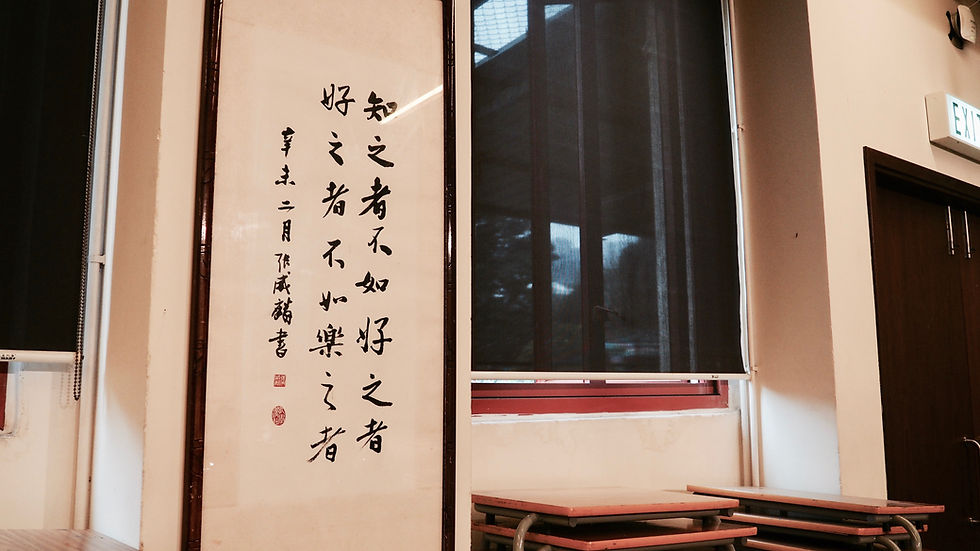 知之者不如好之者
好之者不如樂之者
辛未二月張威麟書
EXIT